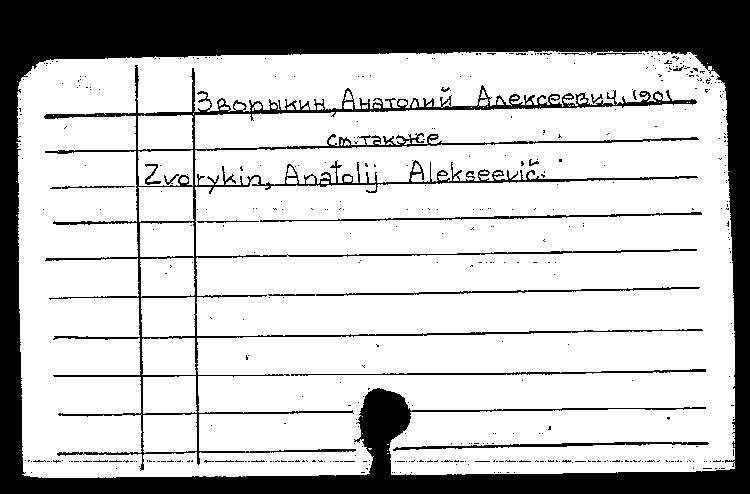 Зворыкин, Анатолий Алексеевич, 1901
см. также
Zvorykin, Anatolij Alekseevič.